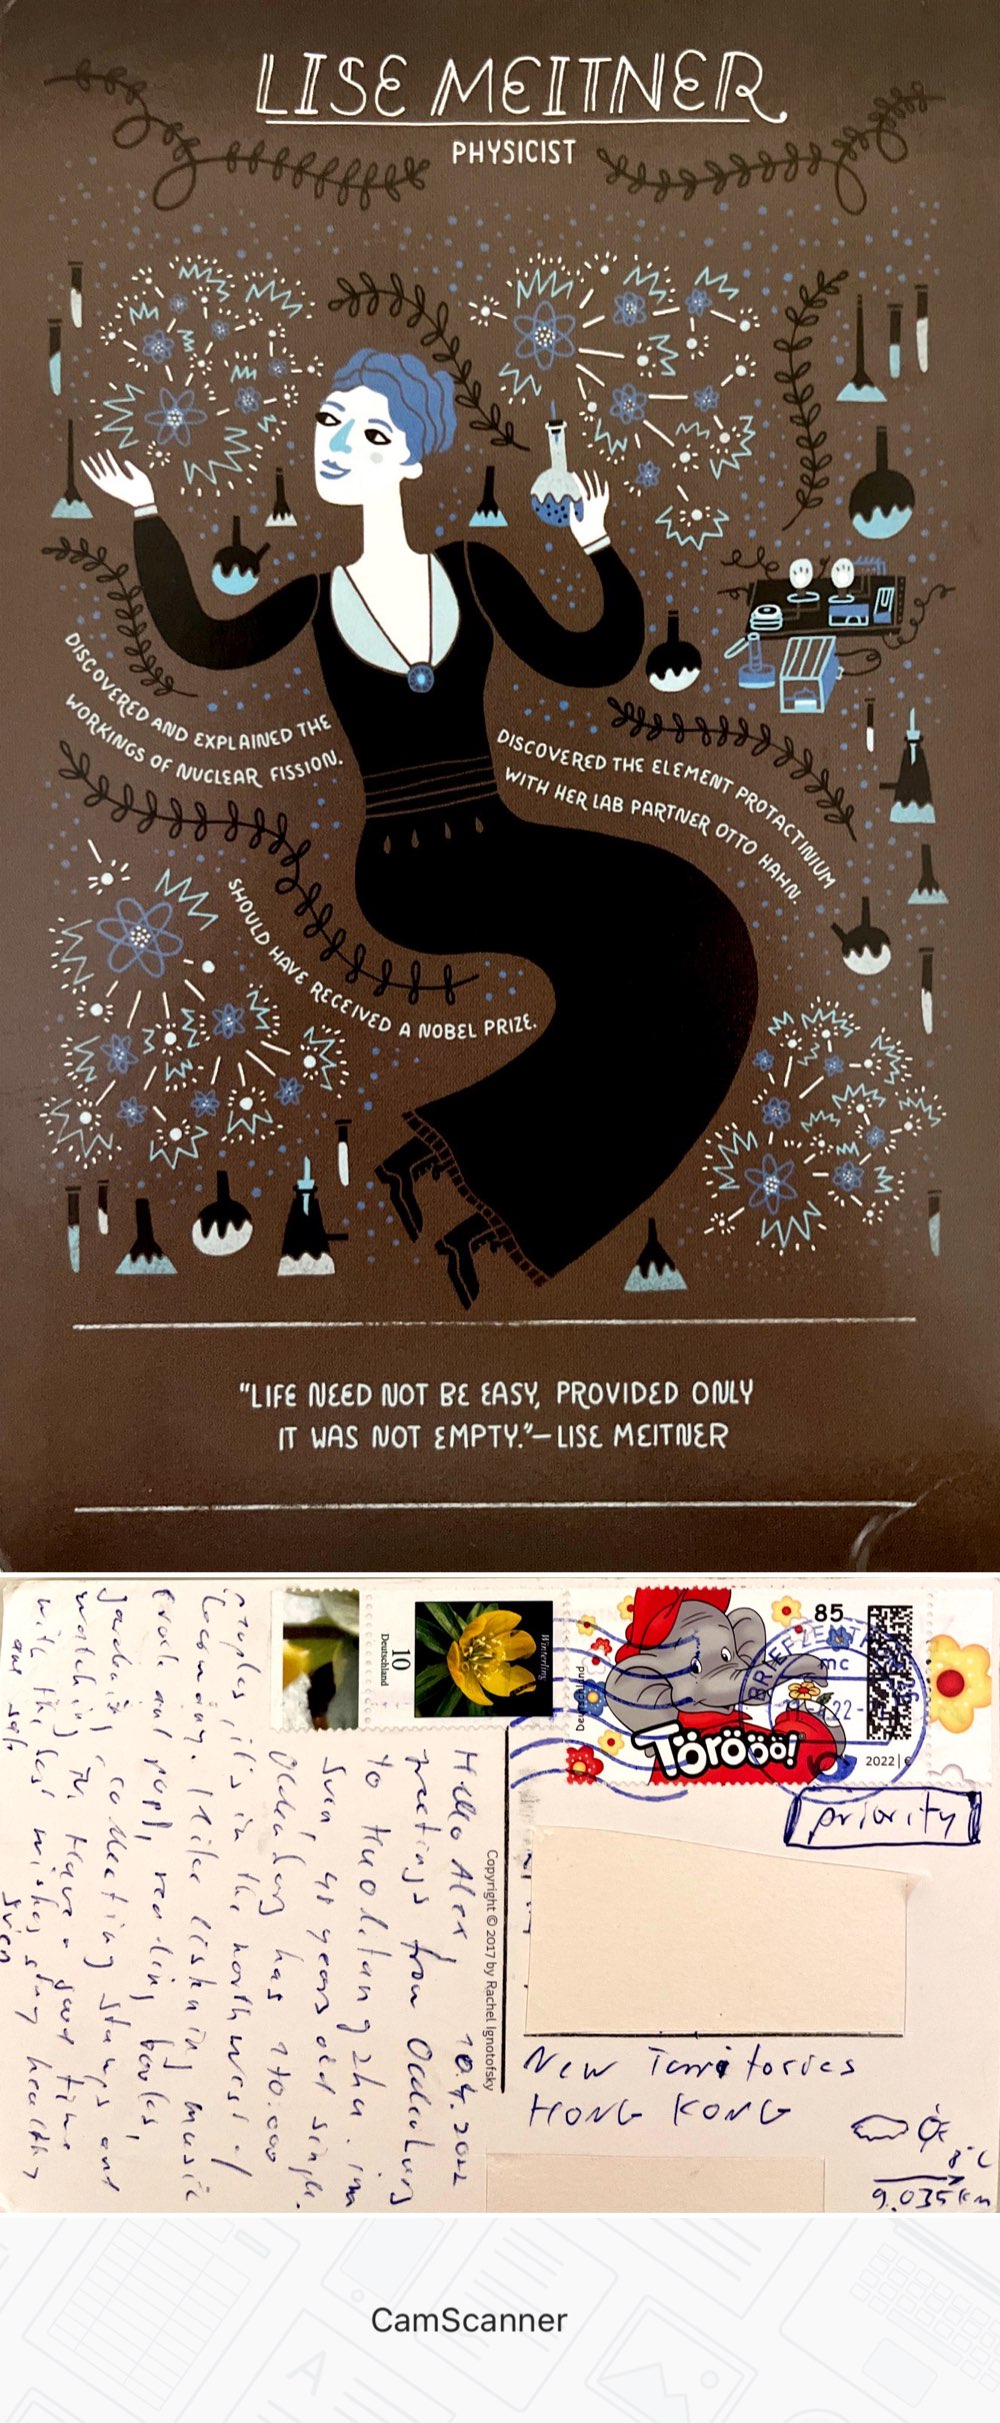 LISE MEITNER
PHYSICIST
DISCOVERED AND EXPLAINED THE
WORKINGS OF NUCLEAR FISSION.
DISCOVERED THE ELEMENT PROTACTINIUM
WITH HER LAB PARTNER OTTO HAHN.
SHOULD HAVE RECEIVED A NOBEL PRIZE.
"LIFE NEED NOT BE EASY, PROVIDED ONLY
IT WAS NOT EMPTY."—LISE MEITNER
Deutschland
10
Winterling
Deutschland
85
BRIEFZENTR
mc
22-
Törööö!
2022 | €
priority
Hello Alex, 10.4.2022
greetings from Oldenburg
to
Sven, 48 years old single.
Oldenburg has 170.000
peoples it's in the northwest of
Germany. I like listening music
(rock and pop), reading books,
gardening, collecting stamps and
watching TV. Have a good time
with the best wishes stay healthy
and safe
Sven
Copyright © 2017 by Rachel Ignotofsky
New Territories
HONG KONG
8°C
9.035 km
CamScanner